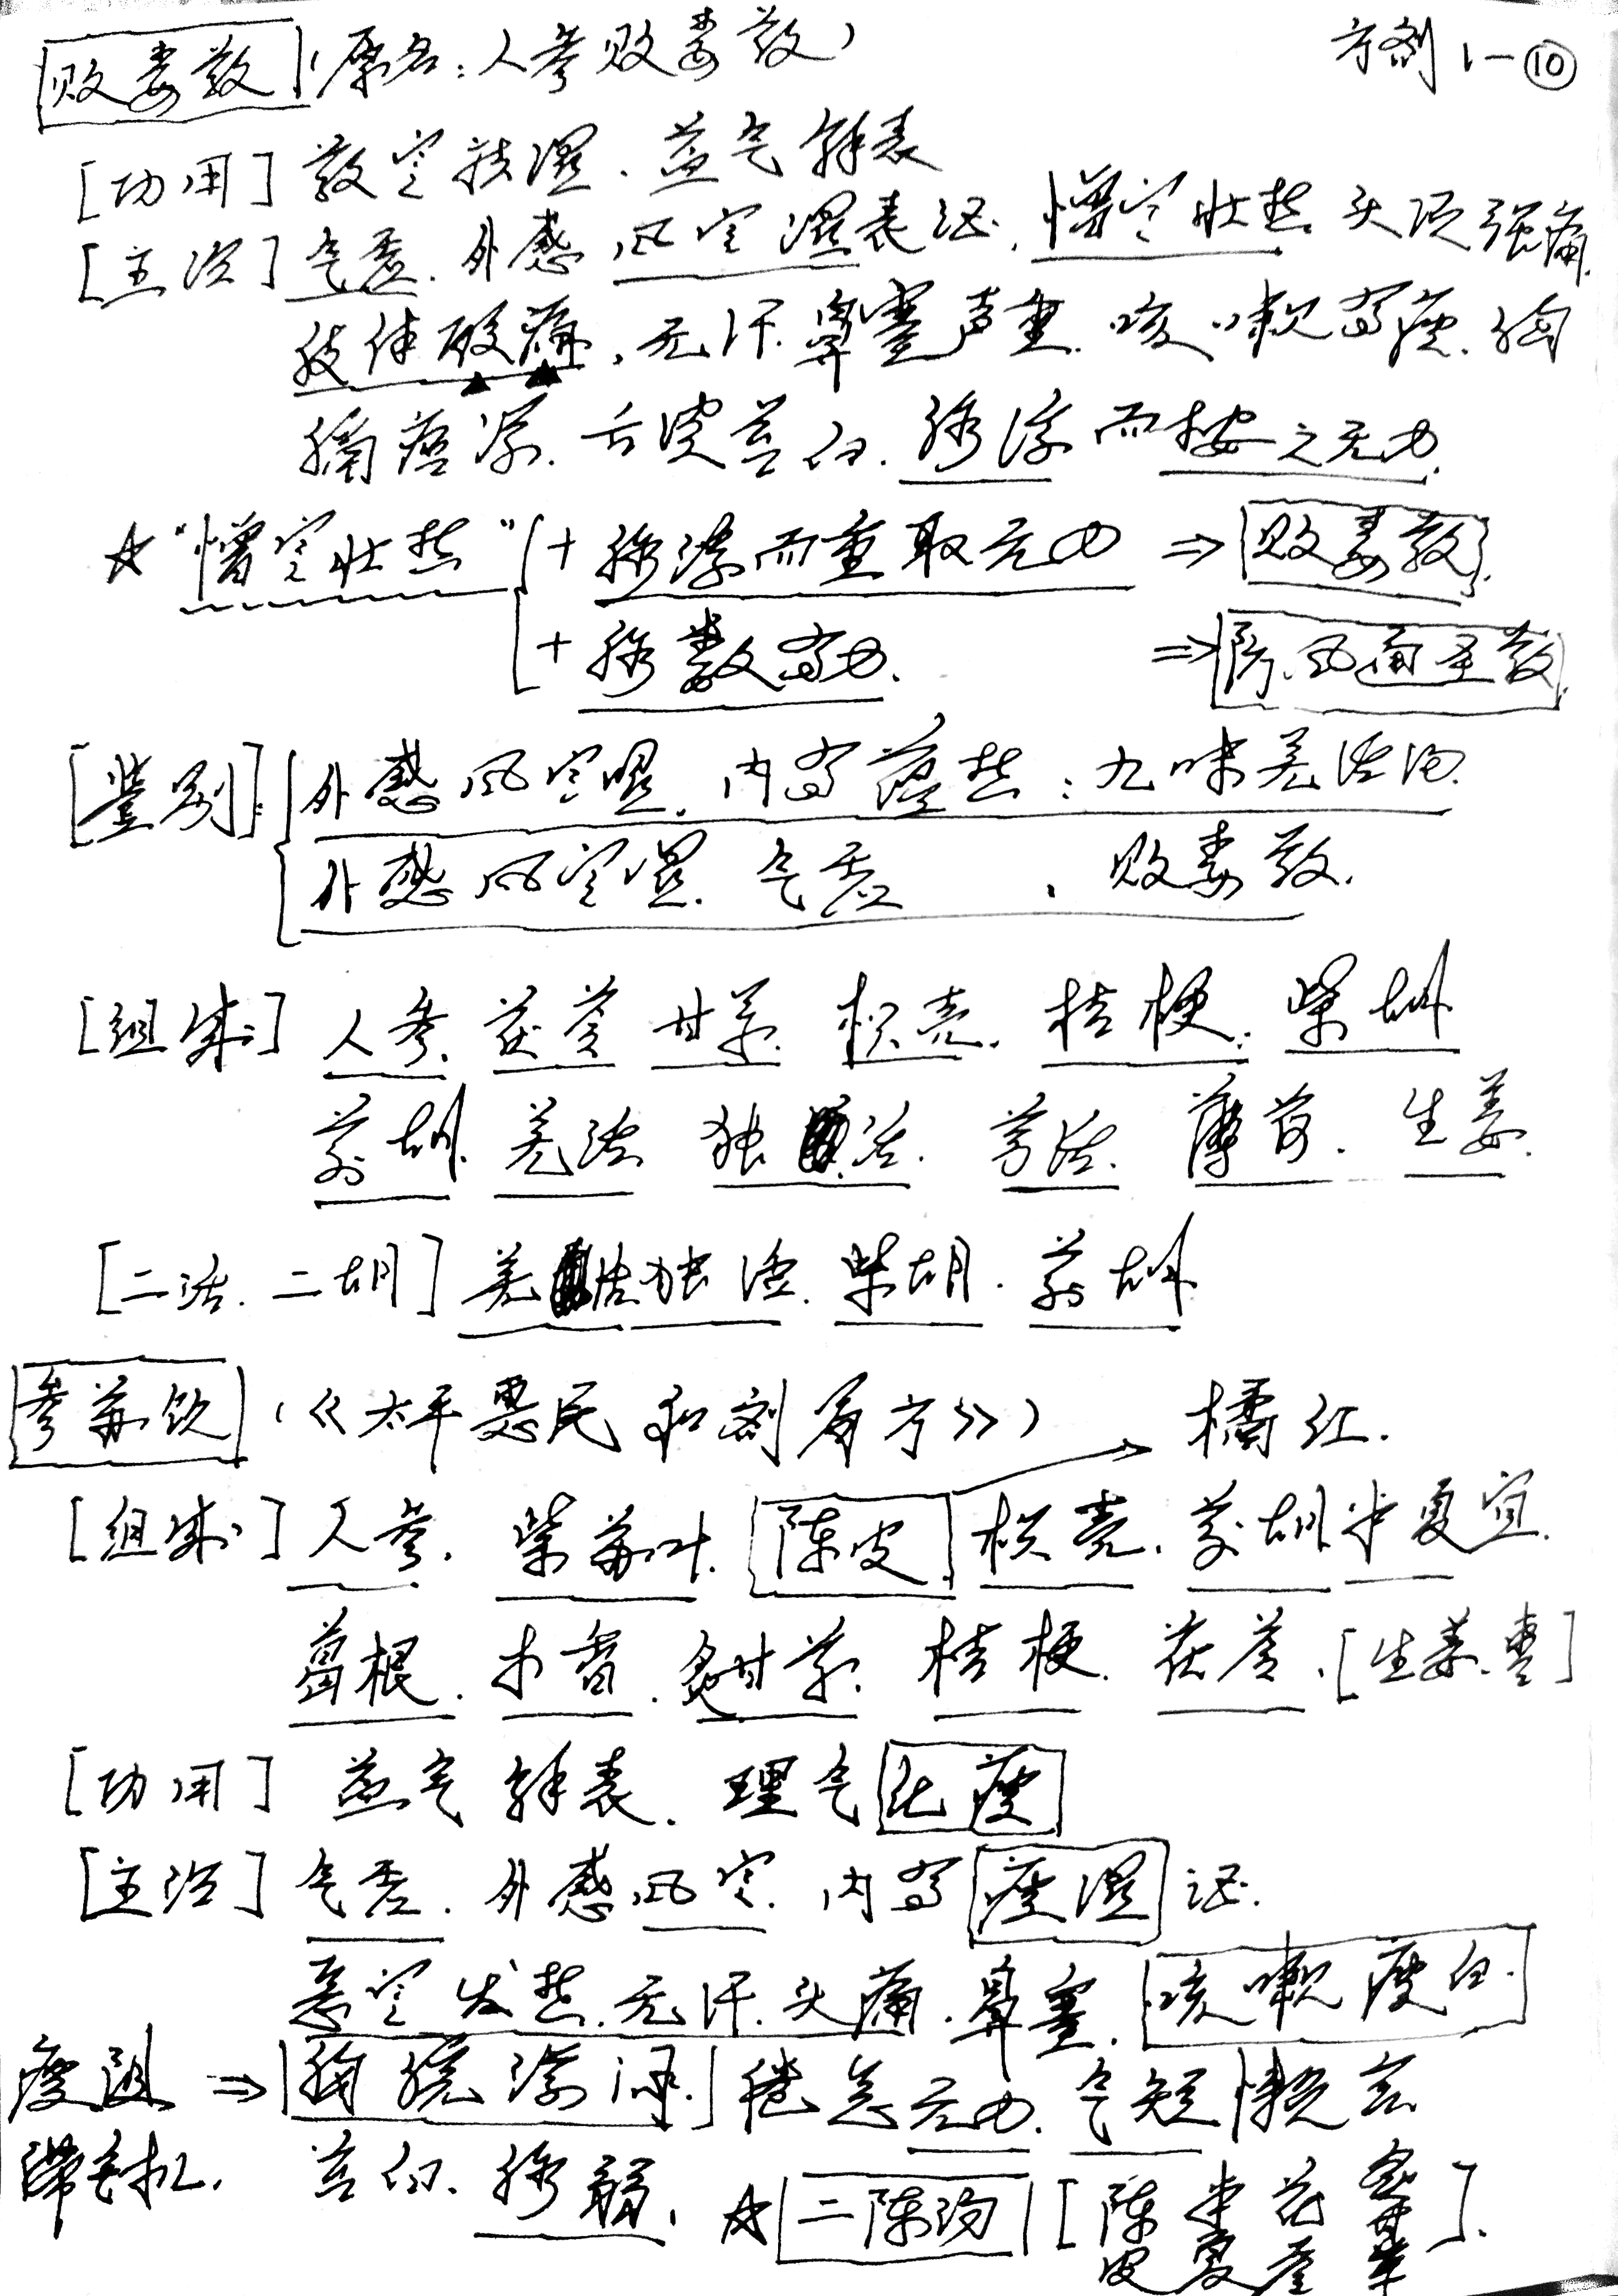 败毒散(原名:人参败毒散) 方剂1-⑩
[功用] 散寒祛湿.益气解表
[主治] 气虚.外感风寒湿表证.憎寒壮热.头项强痛.
肢体酸痛.无汗.鼻塞声重.咳嗽有痰.胸
膈痞满.舌淡苔白.脉浮而按之无力.
☆"憎寒壮热" +脉浮而重取无力 ⇒ 败毒散.
+脉数有力. ⇒ 防风通圣散.
[鉴别]: 外感风寒湿.内有蕴热:九味羌活汤.
外感风寒湿.气虚 、败毒散.
[组成] 人参.茯苓.甘草.枳壳.桔梗.柴胡
前胡.羌活 独活.芎活.薄荷.生姜.
[二活.二胡] 羌活独活.柴胡.前胡
参苏饮 (《太平惠民和剂局方》) → 橘红.
[组成] 人参.紫苏叶.陈皮 枳壳.前胡 半夏宜.
葛根.木香.炙甘草.桔梗.茯苓.[生姜.枣]
[功用] 益气解表.理气化痰
[主治] 气虚.外感风寒.内有痰湿证.
恶寒发热.无汗.头痛.鼻塞.咳嗽痰白.
痰阻 ⇒ 胸脘满闷.倦怠无力.气短懒言
滞气机. 苔白.脉弱. ☆ 二陈汤 [陈皮 半夏 茯苓 炙甘草].